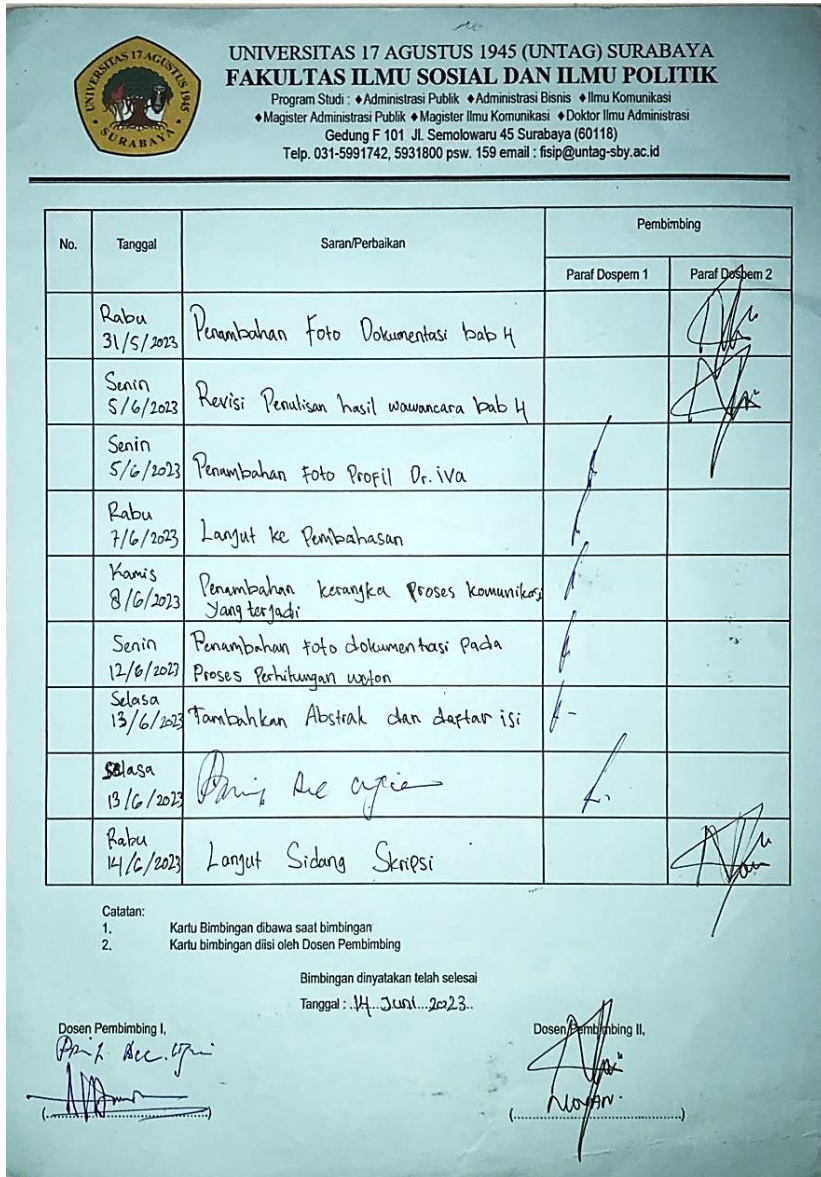 UNIVERSITAS 17 AGUSTUS 1945
SURABAYA
UNIVERSITAS 17 AGUSTUS 1945 (UNTAG) SURABAYA
FAKULTAS ILMU SOSIAL DAN ILMU POLITIK
Program Studi : ♦Administrasi Publik ♦Administrasi Bisnis ♦Ilmu Komunikasi
♦Magister Administrasi Publik ♦Magister Ilmu Komunikasi ♦Doktor Ilmu Administrasi
Gedung F 101 Jl. Semolowaru 45 Surabaya (60118)
Telp. 031-5991742, 5931800 psw. 159 email : fisip@untag-sby.ac.id
No. Tanggal Saran/Perbaikan Pembimbing
Paraf Dospem 1 Paraf Dospem 2
Rabu
31/5/2023 Penambahan Foto Dokumentasi bab 4
Senin
5/6/2023 Revisi Penulisan hasil wawancara bab 4
Senin
5/6/2023 Penambahan Foto Profil Dr. iva
Rabu
7/6/2023 Lanjut ke Pembahasan
Kamis
8/6/2023 Penambahan kerangka Proses komunikasi
yang terjadi
Senin Penambahan Foto dokumentasi pada
12/6/2023 Proses Perhitungan weton
Selasa
13/6/2023 Tambahkan Abstrak dan daftar isi
Selasa
13/6/2023
Rabu
14/6/2023 Lanjut Sidang Skripsi
Catatan:
1. Kartu Bimbingan dibawa saat bimbingan
2. Kartu bimbingan diisi oleh Dosen Pembimbing
Bimbingan dinyatakan telah selesai
Tanggal : 14 Juni 2023
Dosen Pembimbing I, Dosen Pembimbing II,